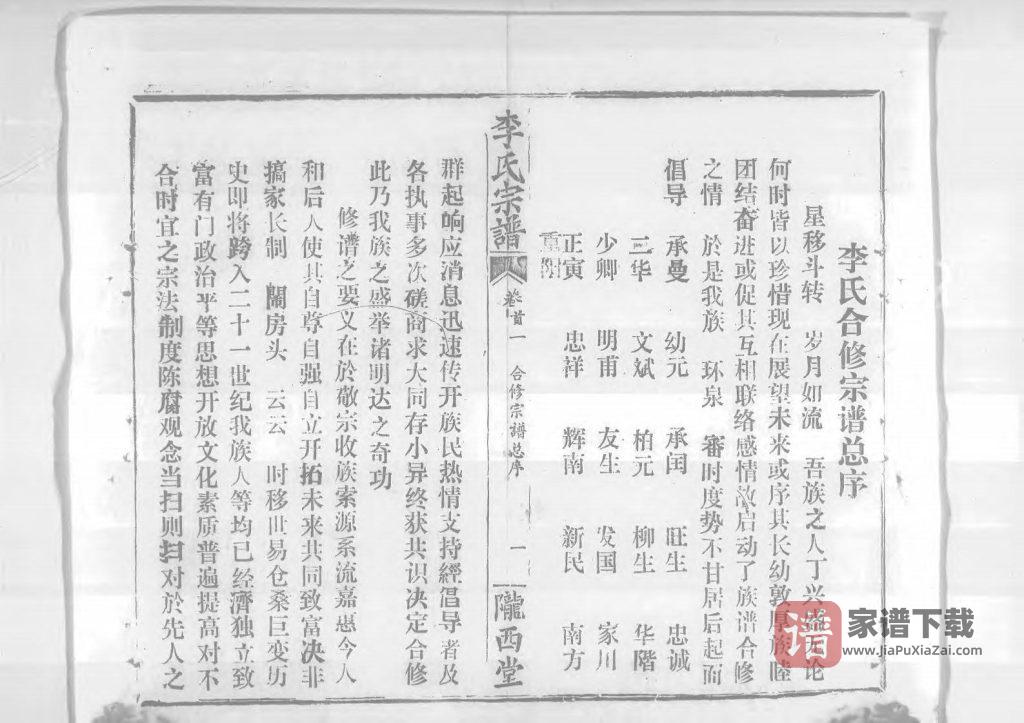 李氏合修宗谱总序
星移斗转 岁月如流 吾族之人丁兴盛无论
何时皆以珍惜现在展望未来或序其长幼敦厚族陸
团结奋进或促其互相联络感情故启动了族谱合修
之情 於是我族 环泉 審时度势不甘居后起而
倡导 承曼 幼元 承闰 旺生 忠诚
三华 文斌 柏元 柳生 华階
少卿 明甫 友生 发国 家川
正寅 忠祥 辉南 新民 南方
重附
李氏宗譜
卷首一 合修宗谱总序 一
隴西堂
群起响应消息迅速传开族民热情支持經倡导者及
各执事多次磋商求大同存小异终获共识决定合修
此乃我族之盛举诸明达之奇功
修谱之要义在於敬宗收族索源系流嘉惠今人
和后人使其自尊自强自立开拓未来共同致富决非
搞家长制 閙房头 云云 时移世易仓桑巨变历
史即将跨入二十一世纪我族人等均已经濟独立致
富有门政治平等思想开放文化素质普遍提高对不
合时宜之宗法制度陈腐观念当扫则扫对於先人之
谱
家谱下载
www.JiaPuXiaZai.com